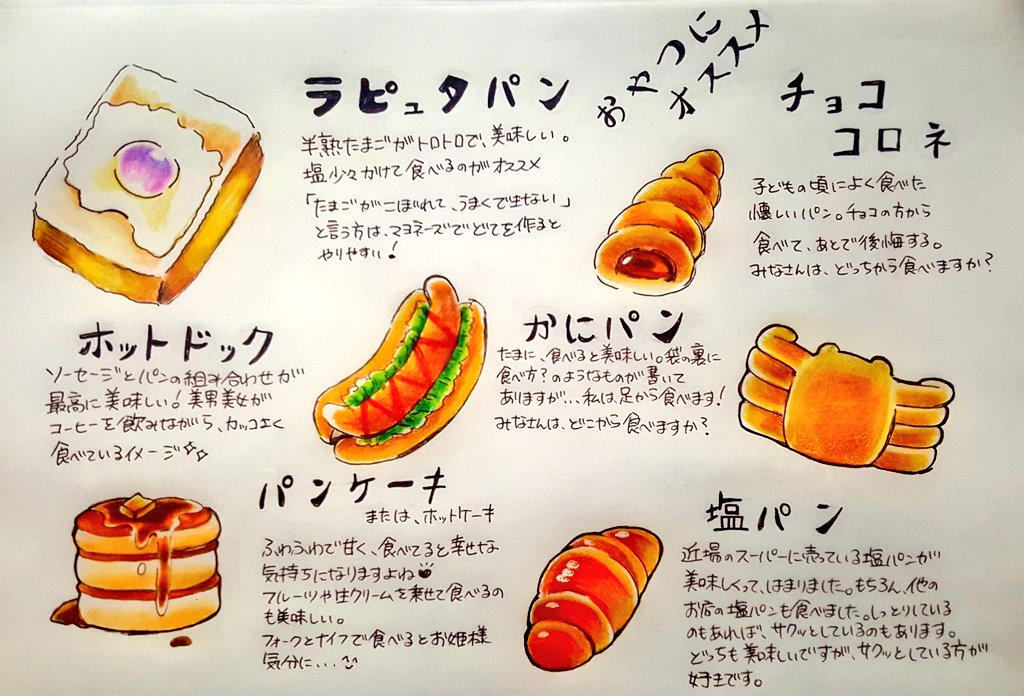 ラピュタパン
半熟たまごがトロトロで、美味しい。
塩少々かけて食べるのがオススメ
「たまごがこぼれて、うまくできない」
と言う方は、マヨネーズでどてを作ると
やりやすい!
おやつに
オススメ
チョコ
コロネ
子どもの頃によく食べた
懐しいパン。チョコの方から
食べて、あとで後悔する。
みなさんは、どっちから食べますか?
ホットドック
ソーセージとパンの組み合わせが
最高に美味しい!美男美女が
コーヒーを飲みながら、カッコよく
食べているイメージ☆☆
かにパン
たまに、食べると美味しい。袋の裏に
食べ方?のようなものが書いて
ありますが...私は、足から食べます!
みなさんは、どこから食べますか?
パンケーキ
または、ホットケーキ
ふわふわで甘く、食べてると幸せな
気持ちになりますよね
フルーツや生クリームを乗せて食べるの
も美味しい。
フォークとナイフで食べるとお姫様
気分に...
塩パン
近場のスーパーに売っている塩パンが
美味しくって、はまりました。もちろん、他の
お店の塩パンも食べました。しっとりしている
のもあれば、サクッとしているのもあります。
どっちも美味しいですが、サクッとしている方が
好きです。